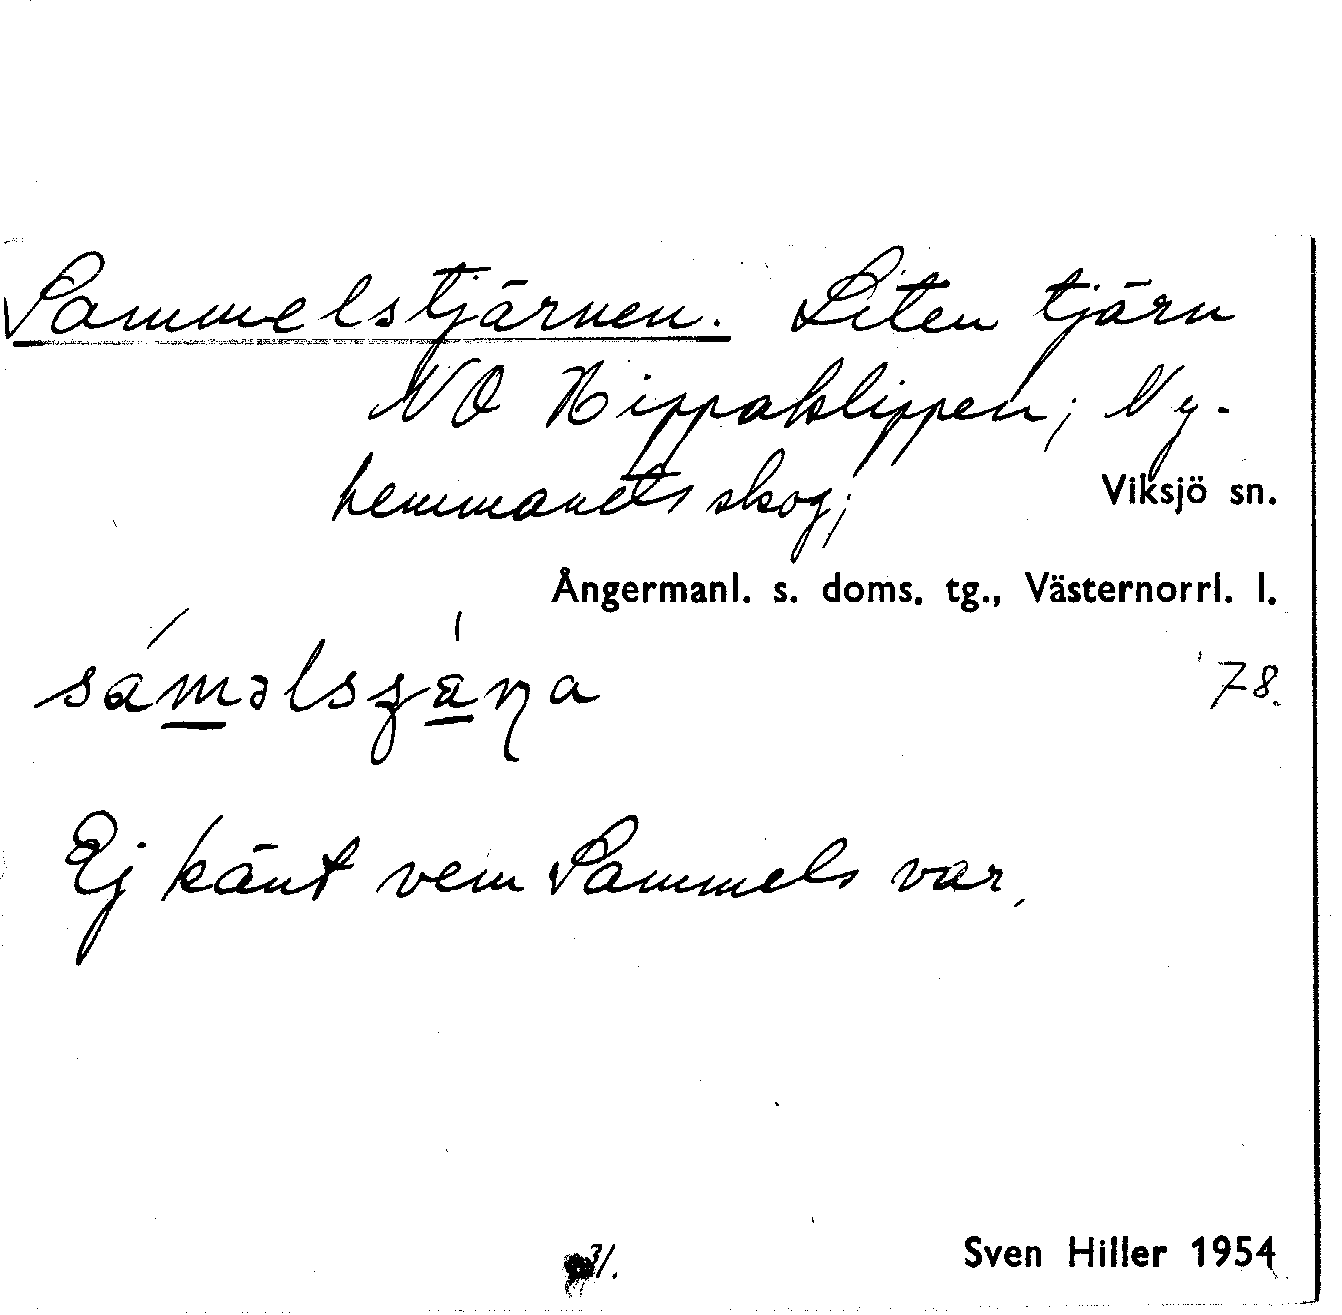 Sammelstjärnen. Liten tjärn
NO Hippaklippen; Ny-
hemmanets skog;
Viksjö sn.
Ångermanl. s. doms. tg., Västernorrl. l.
78.
Ej känt vem Sammels var.
Sven Hiller 1954